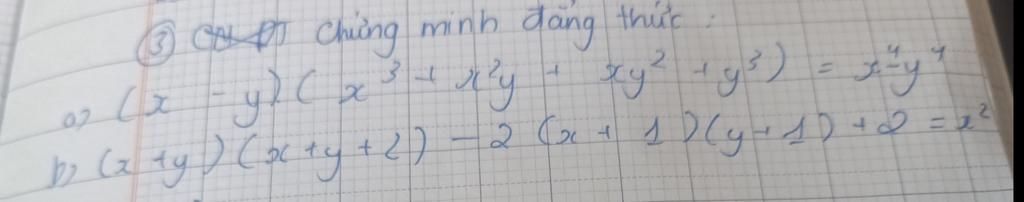 ③ Chứng minh đẳng thức :
a) (x - y)(x³ + x²y + xy² + y³) = x⁴ - y⁴
b) (x + y)(x + y + 2) - 2(x + 1)(y + 1) + 2 = x²